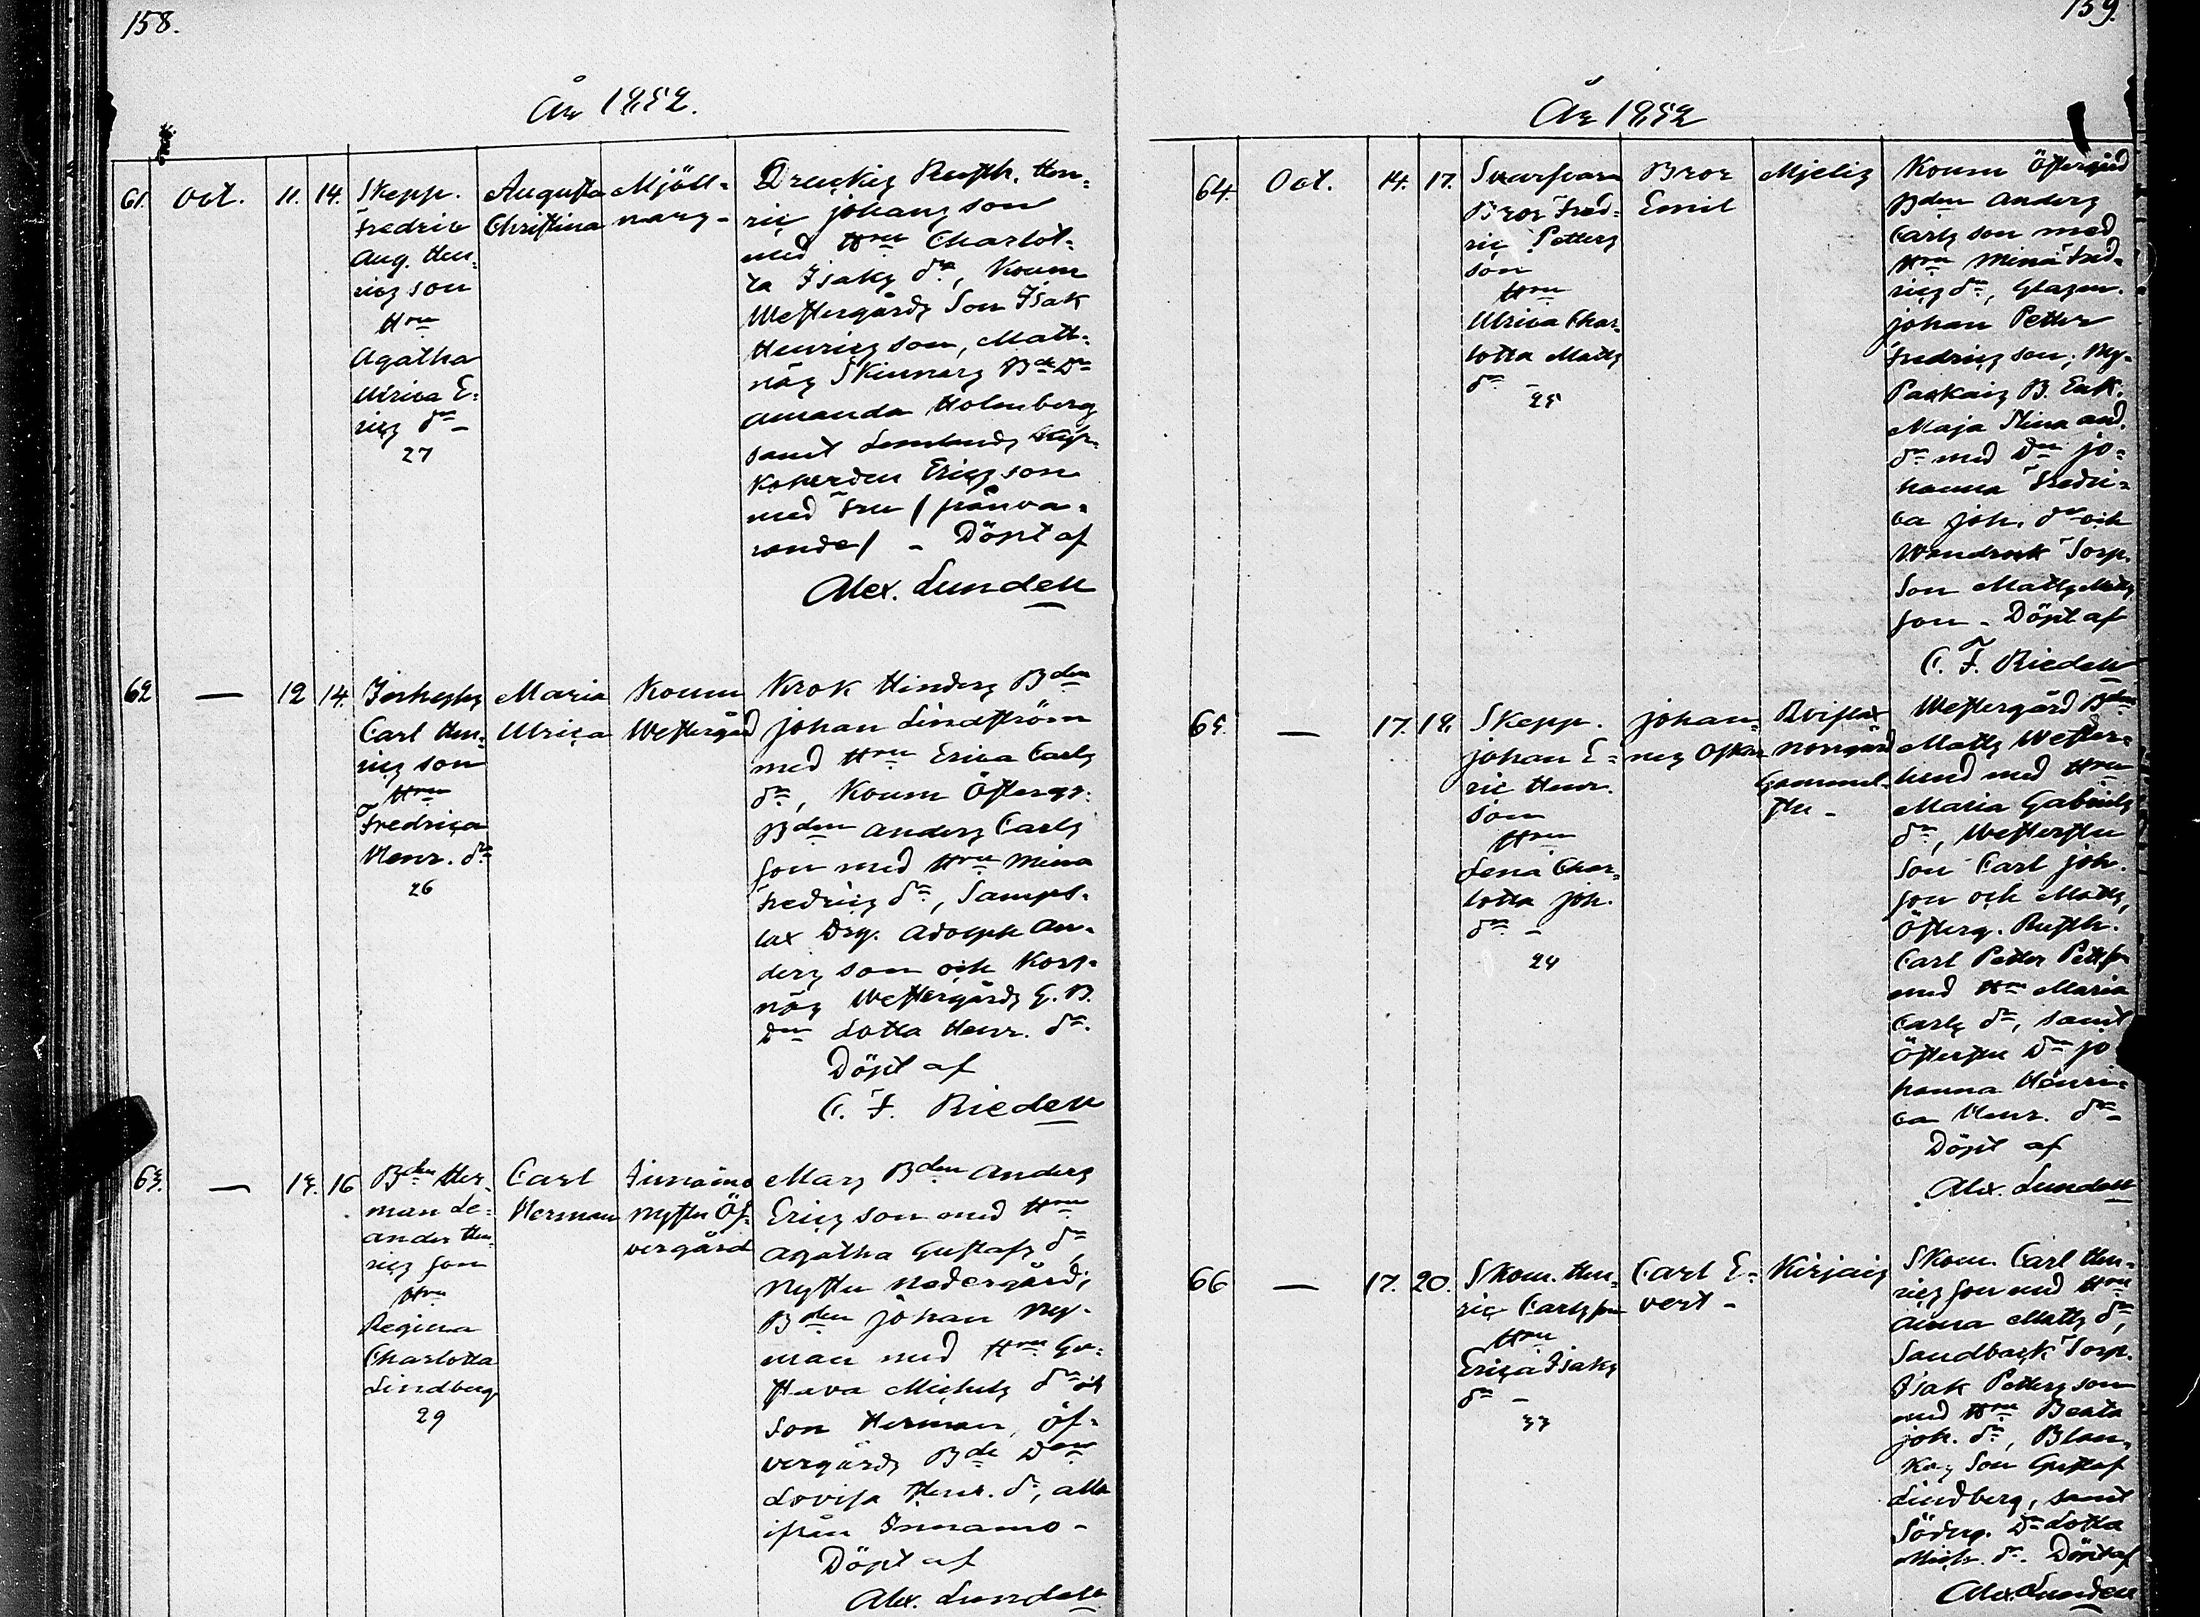 158.
År 1852.
61. Oct. 11. 14.
Skepp.
Fredric
Aug. Hen-
rics son
Hru
Agatha
Ulrica E-
rics dr
27
Augusta
Christina
Mjöll-
nars -
Hen-
ric Johans son
med Hru Charlot-
ta Isaks dr, Koum
Westergårds Son Isak
Henrics son, Matt-
näs Skinnars Bde Dr
Amanda Holmberg
samt Lemlands
Ericsson
med Fru / frånva-
rande / - Döpt af
Alex. Lundell
62 — 12 14.
Carl Hen-
rics son
Hru
Fredrica
Henr. dr
26
Maria
Ulrica
Koum
Westergård
Krok Hinders Bden
Johan Lindström
med Hru Erica Carls
dr, Koum Östergs.
Bden Anders Carls
son med Hru Mina
Fredrics dr, Samps-
lax Drg. Adolph An-
ders son och Korp-
näs Westergårds G. B.
Dr Lotta Henr. dr.
Döpt af
C. F. Riedell
63. — 13. 16
Bden Her-
man Le-
ander Hen-
rics son
Hru
Regina
Charlotta
Lindberg
29
Carl
Herman
Jurmo
Nystu Öf-
vergård
Mars Bden Anders
Erics son med Hru
Agatha Gustafs dr
Nystu Nedergårds
Bden Johan Ny-
man med Hru Gu-
stava Michels dr och
Son Herman, Öf-
vergårds Bde Dr
Lovisa Henr. dr, alla
ifrån Innamo -
Döpt af
Alex. Lundell
159.
År 1852
64. Oct. 14. 17.
Bror Fred-
ric Petters
son
Hru
Ulrica Char-
lotta Matts
dr -
25
Bror
Emil
Mjelis
Koum Östergård
Bden Anders
Carls son med
Hru Mina Fred-
rics dr, Glasm.
Johan Petter
Fredrics son, My-
B. Enk.
Maja Stina And.
dr med Dr Jo-
hanna Fredri-
ca Joh. dr och
Wandrock Torp.
Son Matts Matts
son - Döpt af
C. F. Riedell
65. — 17. 18.
Skepp.
Johan E-
ric Henr.
son
Hru
Lena Char-
lotta Joh.
dr -
24
Johan-
nes Oskar
Norrgård
Gammel-
stu -
Westergård Bden
Matts Wester-
lund med Hru
Maria Gabriels
dr, Westerstu
Son Carl Joh.
son och Matts,
Österg. Rusth.
Carl Petter Petts son
med Hru Maria
Carls dr, samt
Österstu Dr Jo
hanna Henri-
ca Henr. dr
Döpt af
Alex. Lundell
66 — 17. 20.
Skom. Hen-
ric Carls son
Hru
Erica Isaks
dr -
33
Carl E-
vert -
Kirjais
Skom. Carl Hen-
rics son med Hru
Anna Matts dr,
Sandback Torp.
Isak Petters son
med Hru Beata
Joh. dr, Blan-
kas Son Gustaf
Lindberg, samt
Söderg. Dr Lotta
Mich. dr. Döpt af
Alex. Lundell